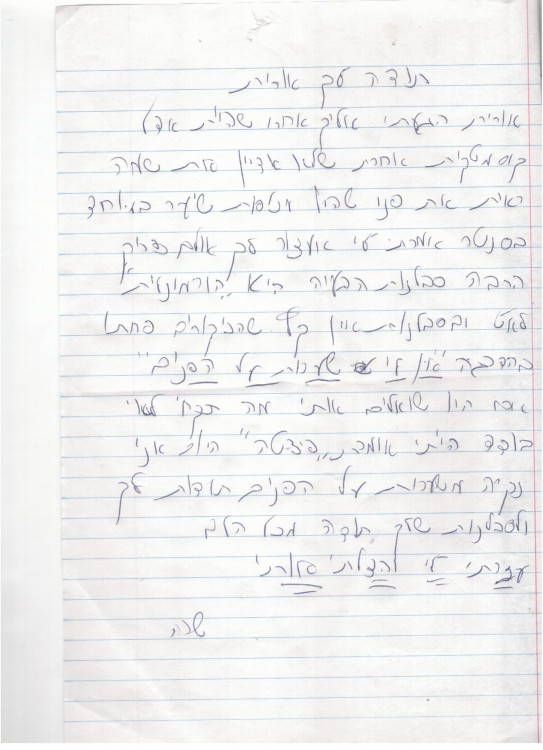 תודה לך אורית
אורית הגעתי אליך אחרי שהיתי אצל
קוסמטקית אחרת שלא אציין את שמה
ראית את פני שהיו עטופות שיער במיוחד
בסנטר אמרת לי אעזור לך אולם נצריך
הרבה סבלנות הבעיה היא "הורמונלית"
לאט ובסבלנות אין קץ שהביקורים פחתו
בהדרגה "אין לי שערות על הפנים"
אם היו שואלים אותי מה תקחי לאי
בודד היתי אומרת "פינצטה" היום אני
נקיה משערות על הפנים תודות לך
ולסבלנות שלך תודה מכל הלב
עזרתי לי הצלתי אותי
שרה